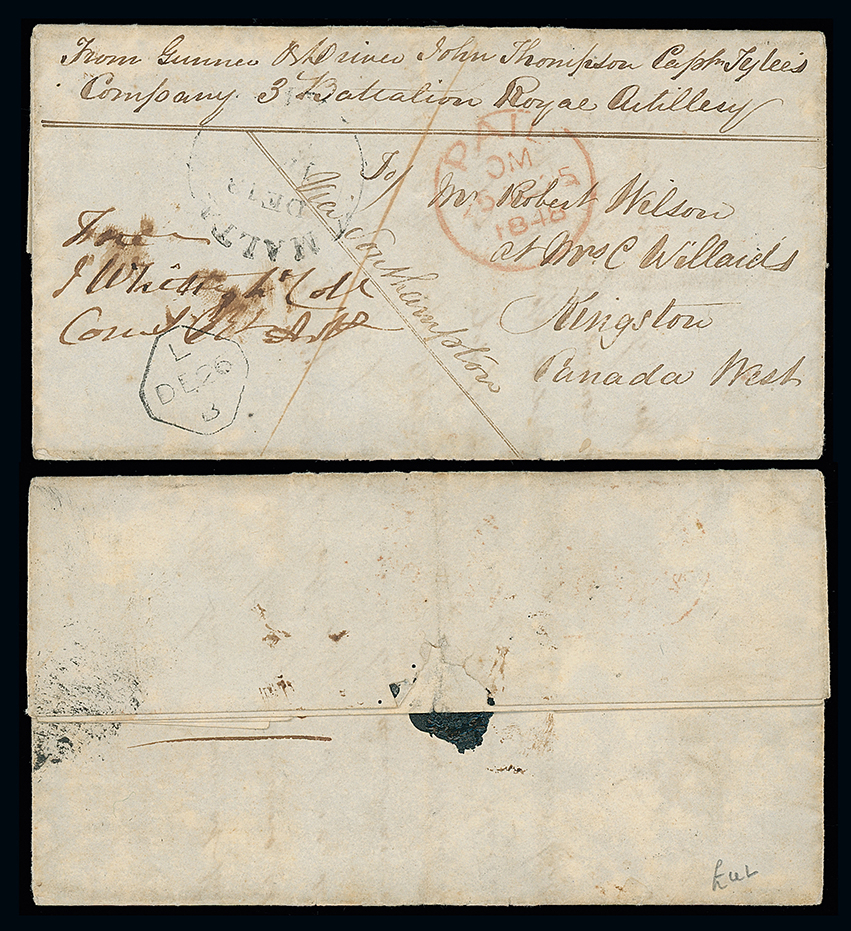 From Gunner & Driver John Thompson Captn Tylee's
Company 3 Battalion Royal Artillery
To
Mr Robert Wilson
at Mrs C Willards
Kingston
Canada West
Via Southampton
Free
J Whitty Lt Col
Comg Rl Art
MALTA
DE 13
PAID
OM
1848
L
DE 26
B